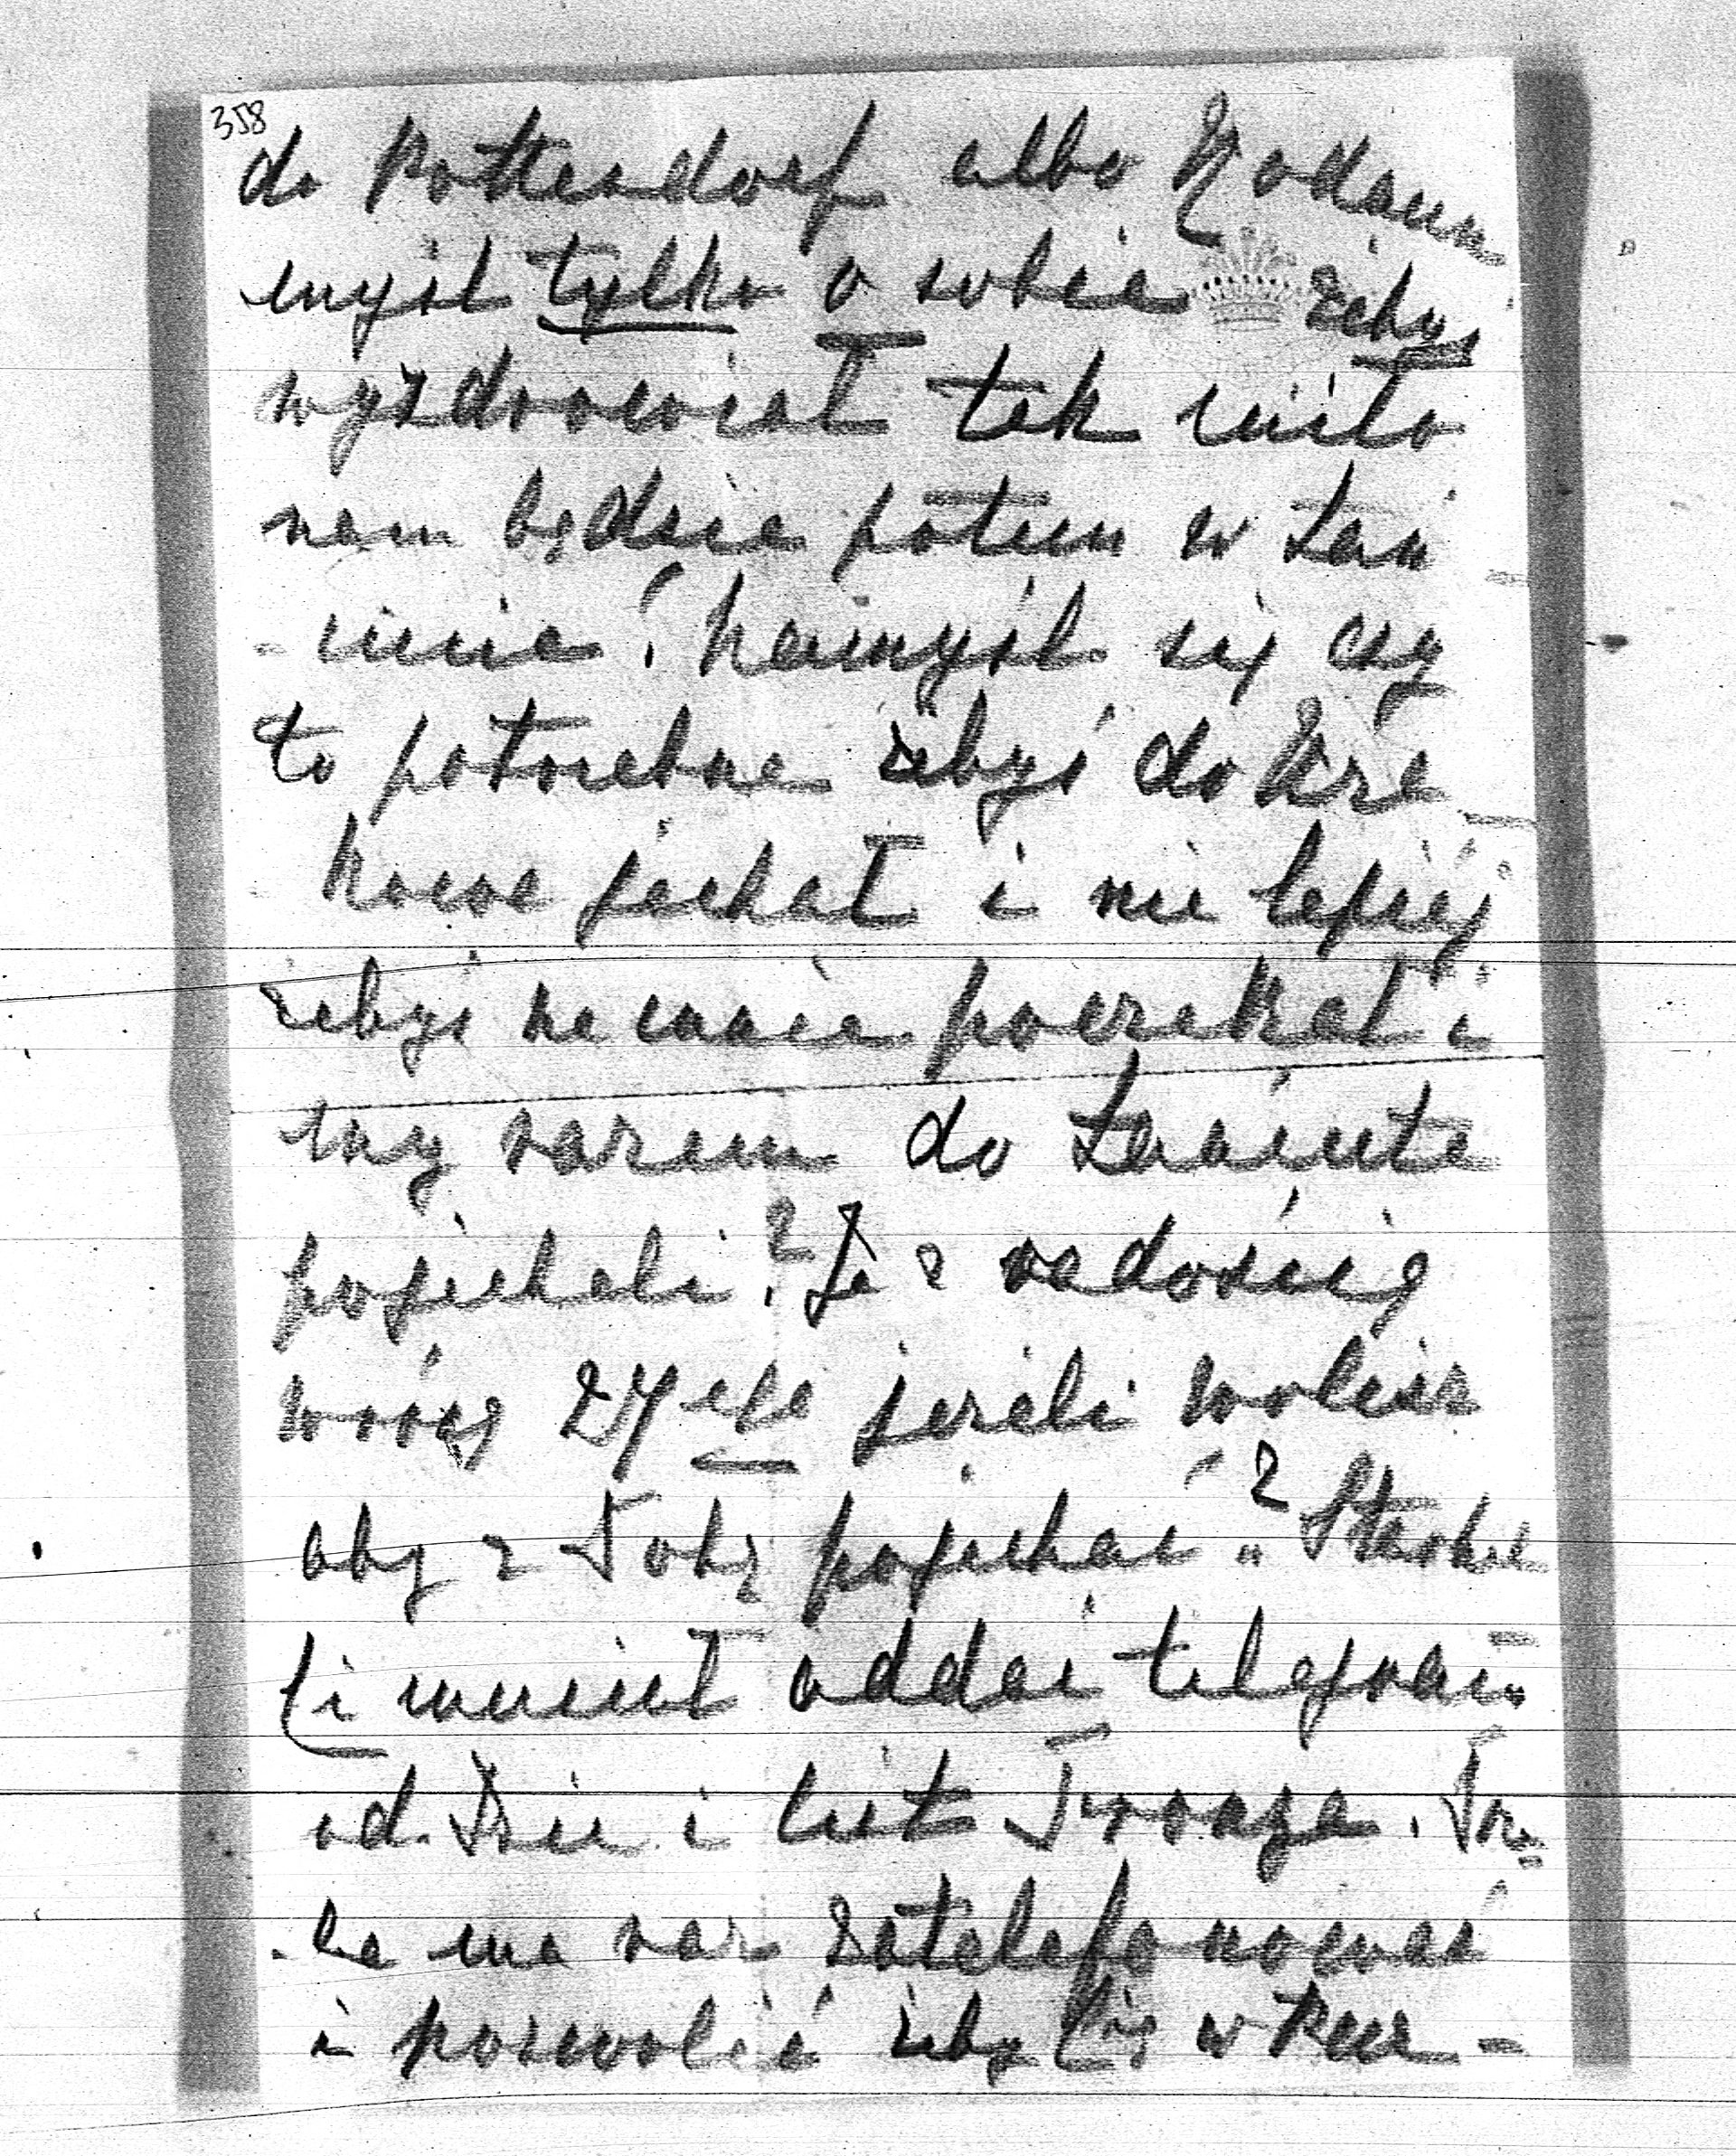 358
do Pottendorf albo Rodaun
myśl tylko o sobie żebyś
wyzdrowiał tak miło
nam będzie potem w Łań
cucie! Namyśl się czy
to potrzebne żebyś do Kra
kowa jechał i nie lepiej
żebyś na mnie poczekał i
my razem do Łańcuta
pojechali? Ja z radością
wrócę 27ego jeżeli wolisz
abym z Tobą pojechać?
Ci musiał oddać telegram
od i list
ma raz zatelefonować
i pozwolić żeby Cię w